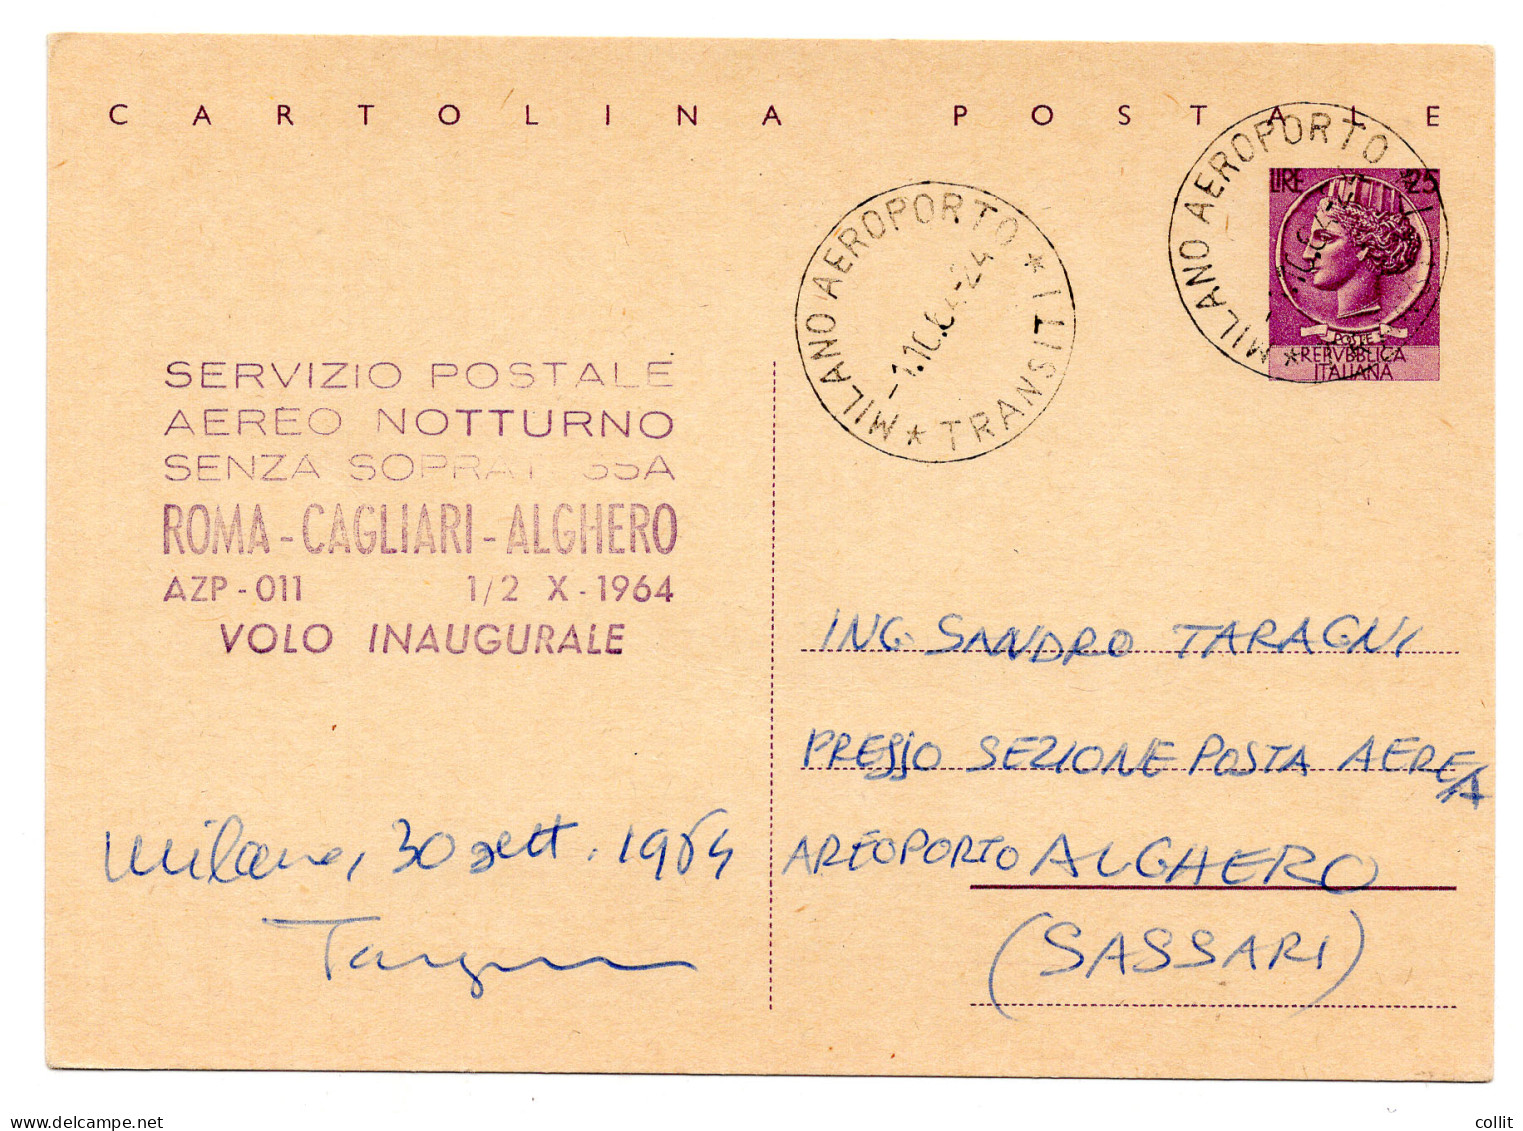 CARTOLINA POSTALE
LIRE 25
POSTE
REPVBBLICA
ITALIANA
MILANO AEROPORTO * TRANSITI *
-1.10.64-24
MILANO AEROPORTO *
SERVIZIO POSTALE
AEREO NOTTURNO
SENZA
ROMA - CAGLIARI - ALGHERO
AZP - 011 1/2 X - 1964
VOLO INAUGURALE
ING. SANDRO TARAGNI
PRESSO SEZIONE POSTA AEREA
AREOPORTO ALGHERO
(SASSARI)
Milano, 30 sett. 1964
delcampe.net
collit